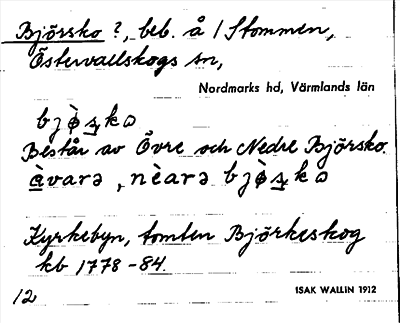 Björsko ?, beb. å 1 Stommen,
Östervallskogs sn,
Nordmarks hd, Värmlands län
Består av Övre och Nedre Björsko.
Kyrkebyn, tomten Björkeskog
kb 1778-84.
12
ISAK WALLIN 1912